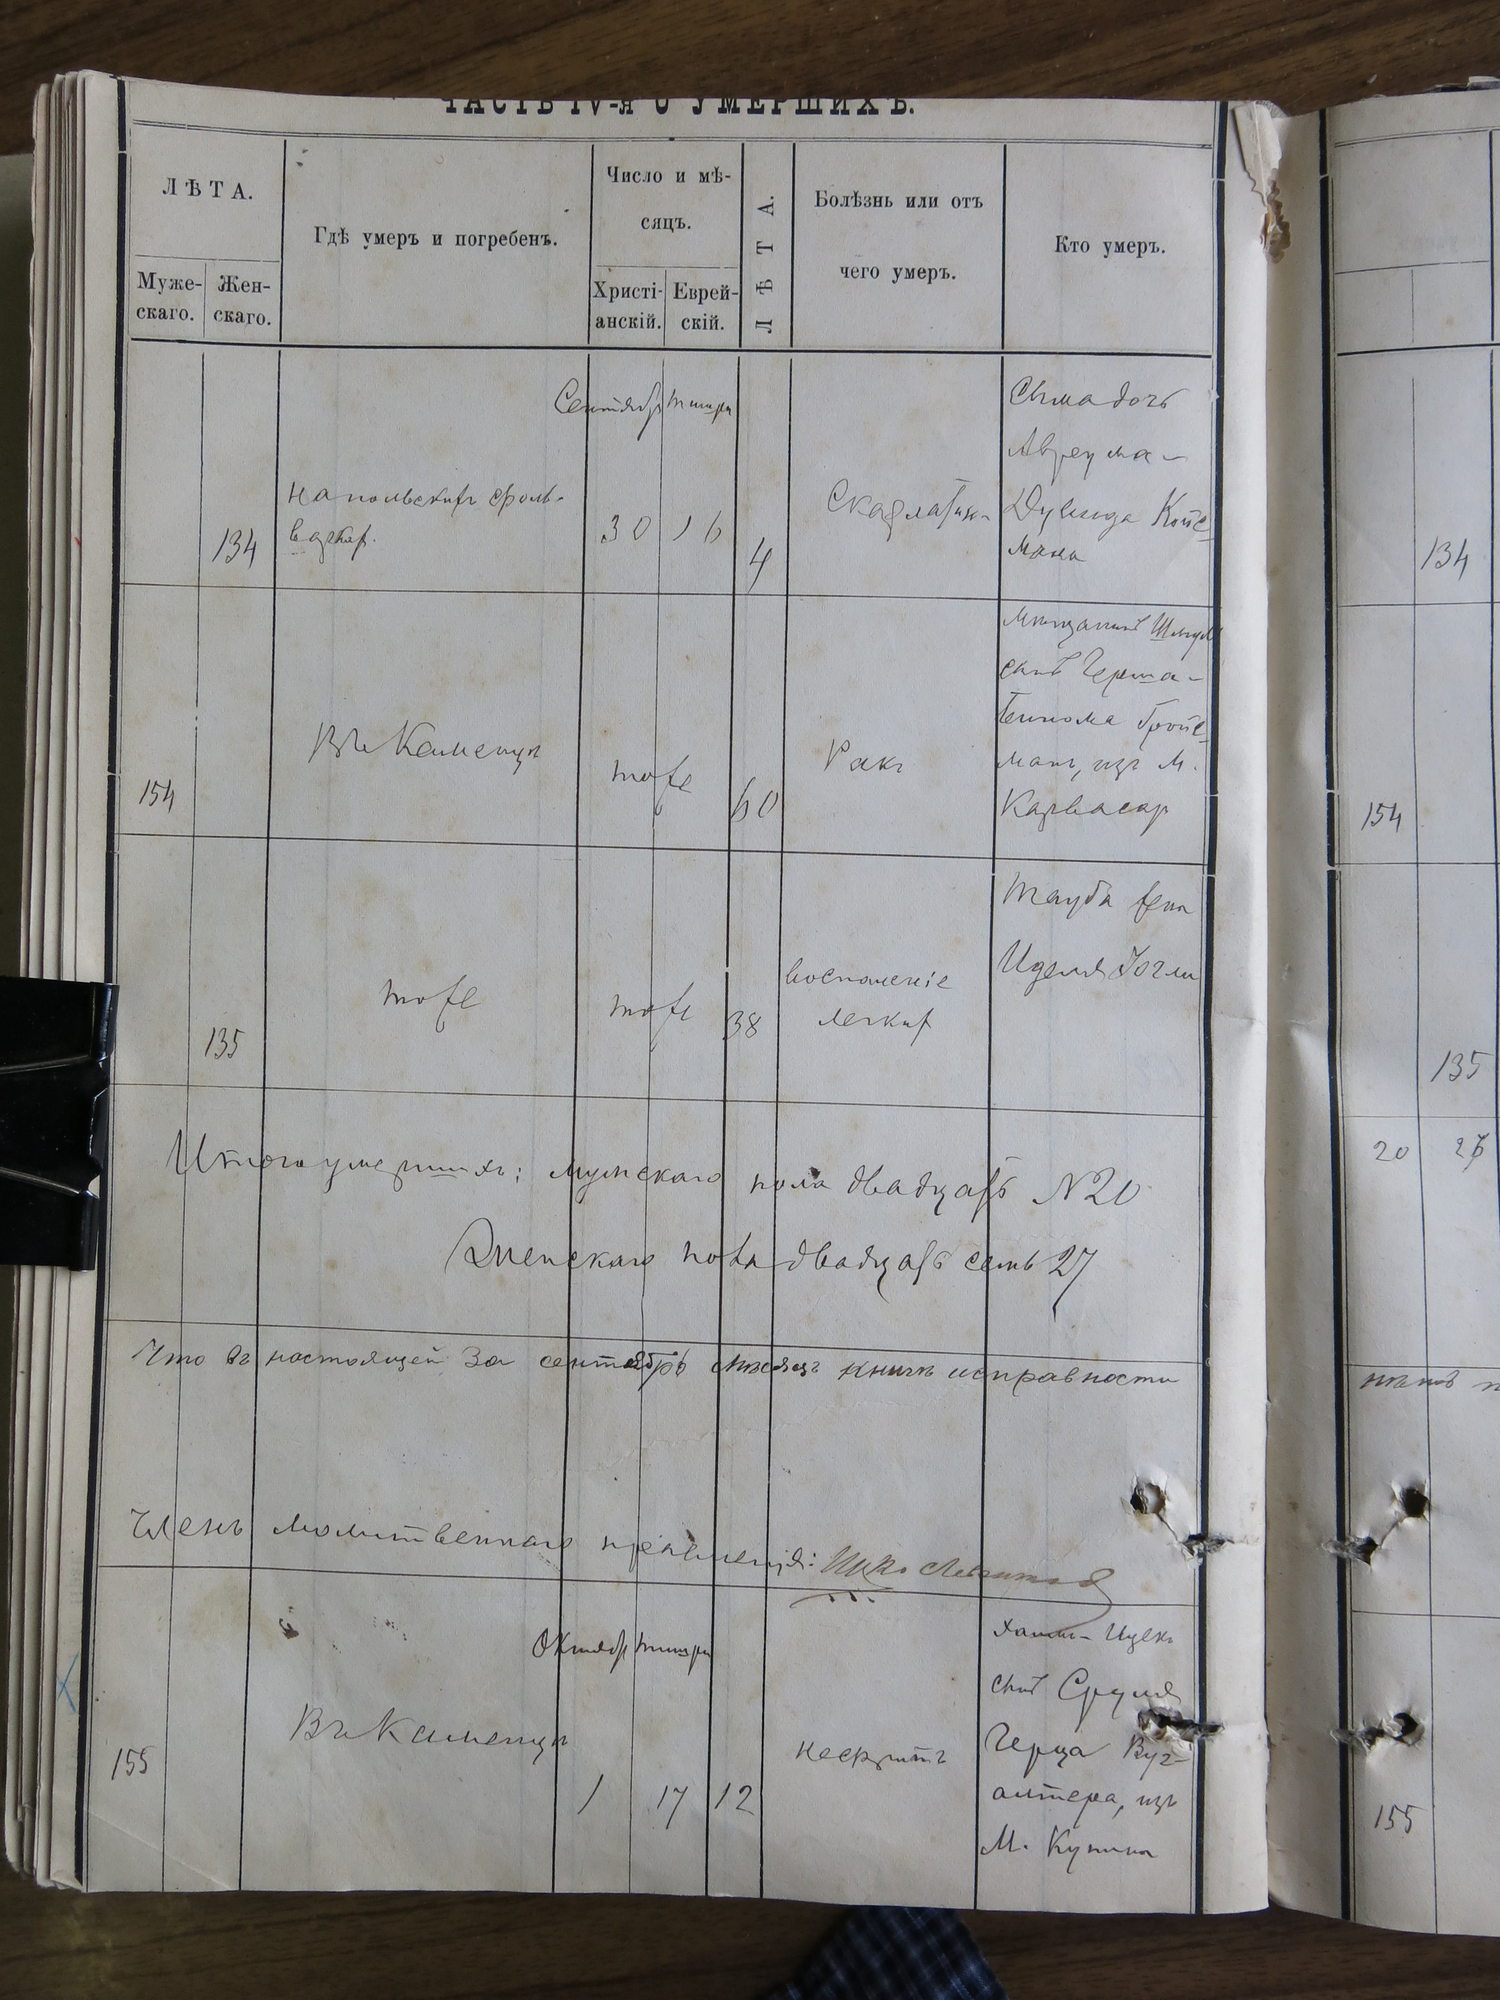 ЧАСТЬ IV-я О УМЕРШИХЪ.
ЛѢТА.
Муже-
скаго.
Жен-
скаго.
Гдѣ умеръ и погребенъ.
Число и мѣ-
сяцъ.
Христі-
анскій.
Еврей-
скій.
ЛѢТА.
Болѣзнь или отъ
чего умеръ.
Кто умеръ.
134
на польскихъ фоль-
варкахъ.
Сентябрь
30
Тишри
16
4
Скарлатин-
Сыма дочь
Аврума-
Дувида Кой-
мана
134
154
Въ Каменцѣ
тоже
60
Ракъ
мѣщанинъ
сынъ Герша-
Бейнома Гройс-
манъ, изъ м.
Карвасар
154
135
тоже
тоже
38
воспаленіе
легких
Тауба жена
Иделя
135
Итого умершихъ: мужскаго пола двадцать №20
Женскаго пола двадцать семь 27
20
Что въ настоящей за сентябрь мѣсяцъ книгѣ исправности
Членъ молитвенного правленія:
155
Въ Каменцѣ
Октябрь
1
Тишри
17
12
нефритъ
Хаим-Ицекъ
сынъ Сруля
Герца Бух-
алтера, изъ
М. Купина
155